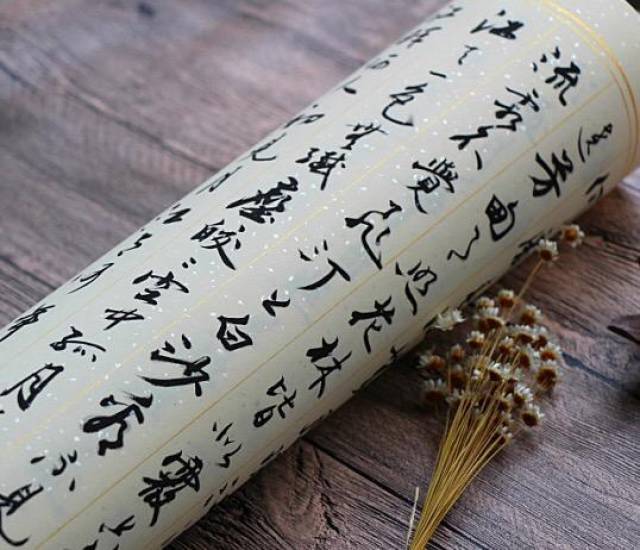 遶芳甸月照花林皆似霰
流霜不覺飛汀上白沙看不見
江天一色無纖塵皎々空中孤月
人初見月江月何年